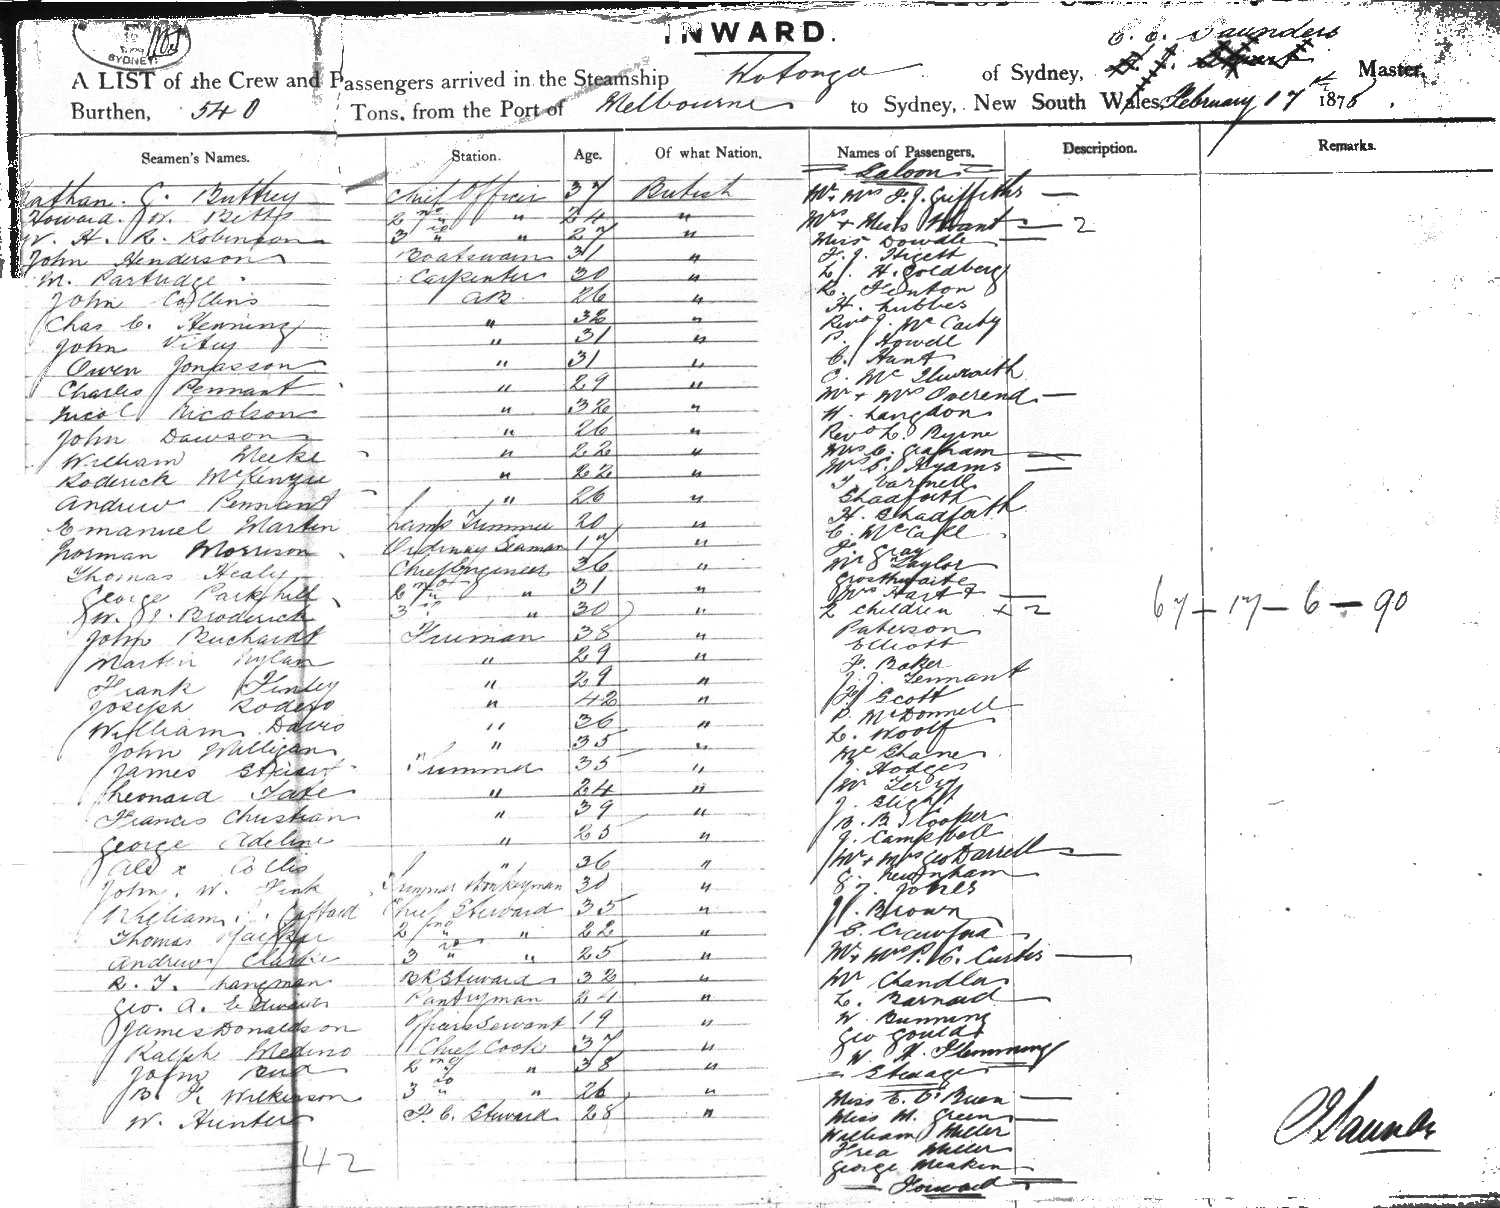 SYDNEY
INWARD.
C. C. Saunders
A LIST of the Crew and Passengers arrived in the Steamship Wotonga of Sydney, Master,
Burthen, 540 Tons, from the Port of Melbourne to Sydney, New South Wales, February 17th 1878.
Seamen's Names. Station. Age. Of what Nation. Names of Passengers. Description. Remarks.
Saloon
Chief Officer 37 British
Howard. W. Betts 2nd " " 24 "
W. H. R. Robinson 3rd " " 27 "
John Henderson Boatswain 31 "
W. Partridge Carpenter 30 "
John Collins AB 26 "
Chas C. Henning " 32 "
John " 31 "
Owen Jonasson " 31 "
Charles Pennant " 29 "
Nicol Nicolson " 32 "
John Dawson " 26 "
William Meeke " 22 "
Roderick McKenzie " 22 "
Andrew Pennant " 26 "
Emanuel Martin Lamp Trimmer 20 "
Norman Morrison Ordinary Seaman 17 "
Thomas Healy Chief Engineer 36 "
George Parkhill 2nd " " 31 "
W. J. Broderick 3rd " " 30 "
John Buchardt Fireman 38 "
Martin Nylan " 29 "
Frank Finley " 29 "
Joseph Rodero " 42 "
William Davis " 36 "
John Milligan " 35 "
James Stuart Trimmer 35 "
Leonard Tate " 24 "
Francis Christian " 39 "
George Adeline " 25 "
Alex Collis " 36 "
John. W. Fink Trimmer Donkeyman 30 "
William Chief Steward 35 "
Thomas 2nd " " 22 "
Andrew Clarke 3rd " " 25 "
R. T. Langman BR Steward 32 "
Geo. A. Edwards Pantryman 24 "
James Donaldson Officers Servant 19 "
Ralph Medino Chief Cook 37 "
John Bird 2nd " " 38 "
B. F. Wilkinson 3rd " " 26 "
W. Hunter F. C. Steward 28 "
42
Mr + Mrs F. J. Griffiths
Mrs + Miss Hoant 2
Miss Dowdle
F. J. Higett
L. H. Goldberg
R. Fenton
H. Lubbes
Revd J. McCarthy
P. Howell
C. Hant
C. McIlwraith
Mr + Mrs Overend
W. Langdon
Revd L. Byrne
Mrs C. Graham
Mrs S. Hyams
T. Varnell
Shadforth
H. Shadforth
C. McCall
J. Gray
Mr S Taylor
Crosthwaite
Mrs Hart +
2 children + 2
Paterson
Elliott
J. Baker
J. J. Tennant
J. Scott
P. McDonnell
L. Woolf
Mc Shane
J. Hodges
W Terry
J. Slight
B. B. Cooper
J. Campbell
Mr + Mrs Geo Darrell
G. Newnham
S. J. Jones
J. Brown
C Crawford
Mr + Mrs P. C. Curtis
Mr Chandler
L. Barnard
W. Bunning
Geo Gould
W. H. Flemming
Steerage
Miss E. O'Brien
Miss M. Green
William Miller
Fred Miller
George Meakin
Forward
67 – 17 – 6 – 90
C Saunders